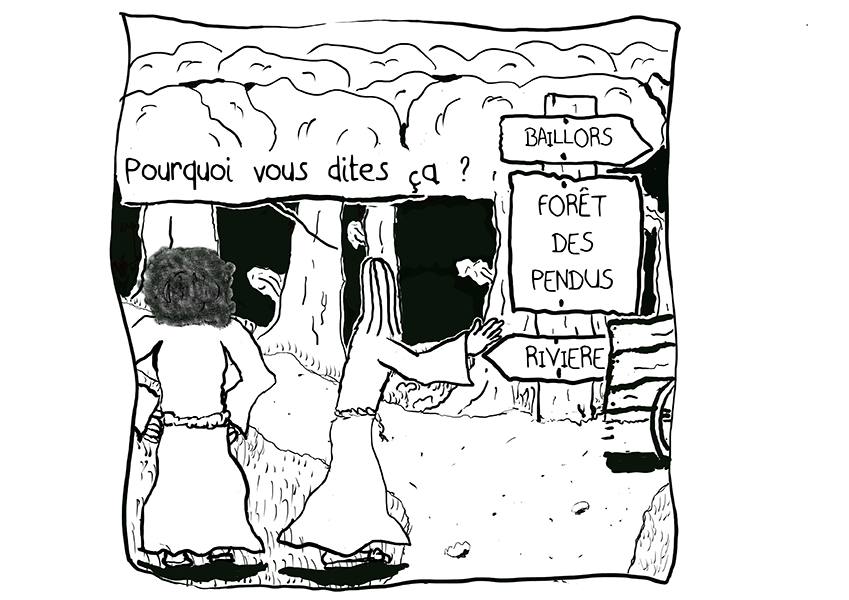 Pourquoi vous dites ça ?
BAILLORS
FORÊT
DES
PENDUS
RIVIERE